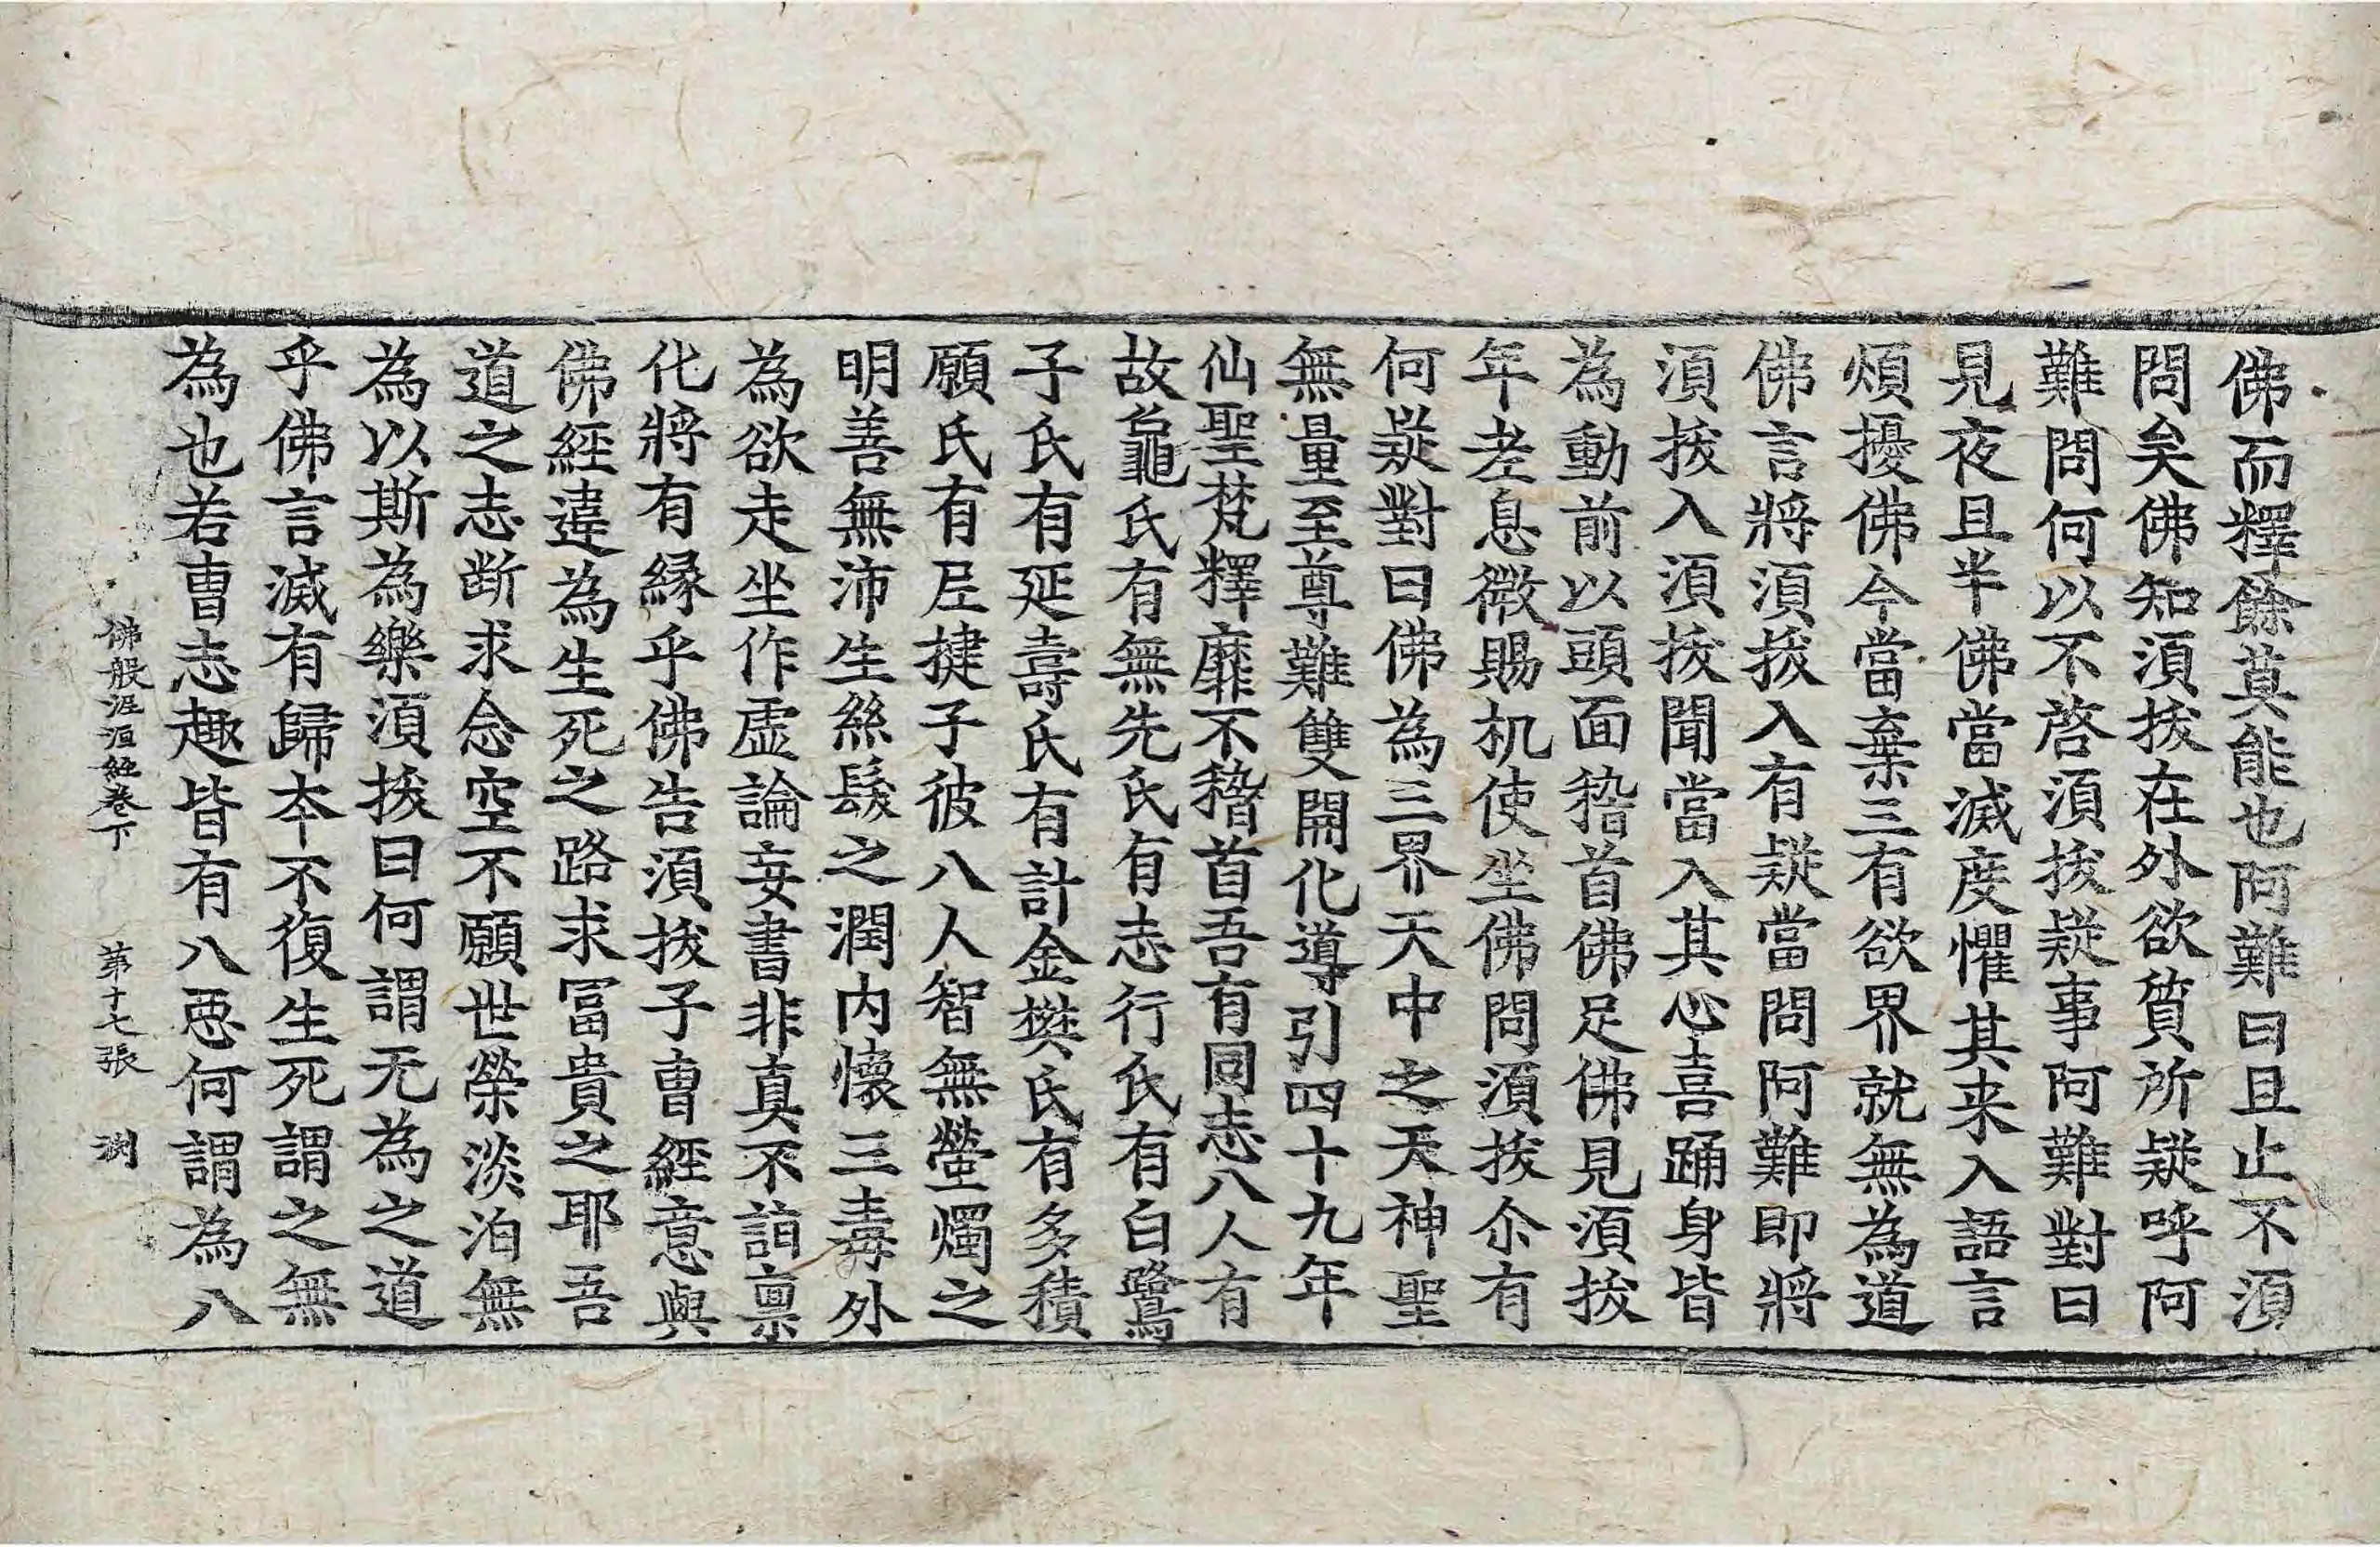 佛而釋餘莫能也阿難曰且止不須
問矣佛知須拔在外欲質所疑呼阿
難問何以不啓須拔疑事阿難對曰
見夜且半佛當滅度懼其来入語言
煩擾佛今當棄三有欲界就無為道
佛言將須拔入有疑當問阿難即將
須拔入須拔聞當入其心喜踊身皆
為動前以頭面稽首佛足佛見須拔
年老息微賜机使坐佛問須拔尒有
何疑對曰佛為三界天中之天神聖
無量至尊難雙開化導引四十九年
仙聖梵釋靡不稽首吾有同志八人有
故龜氏有無先氏有志行氏有白鷺
子氏有延壽氏有計金樊氏有多積
願氏有𡰱揵子彼八人智無螢燭之
明善無沛生絲髮之潤内懷三毒外
為欲走坐作虚論妄書非真不詣稟
化將有縁乎佛告須拔子曺經意與
佛經違為生死之路求冨貴之耶吾
道之志断求念空不願世榮淡泊無
為以斯為樂須拔曰何謂无為之道
乎佛言滅有歸夲不復生死謂之無
為也若曺志趣皆有八惡何謂為八
佛般泥洹經卷下 第十七張 渕